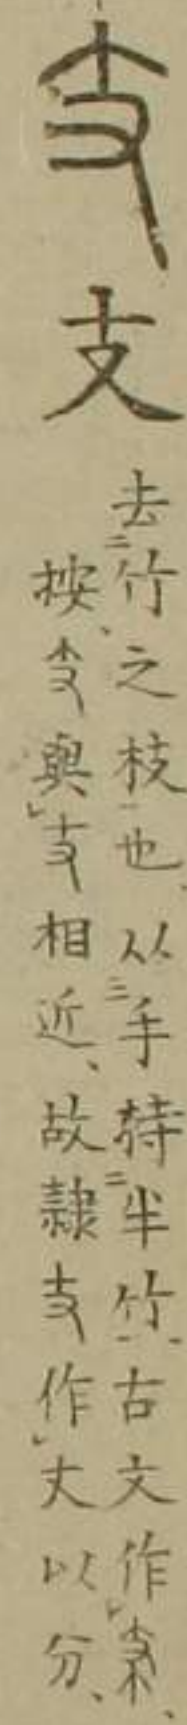 支
去竹之枝也、从手持半竹、古文作𠦙、
按、支與攴相近、故隷支作𠀋以分、